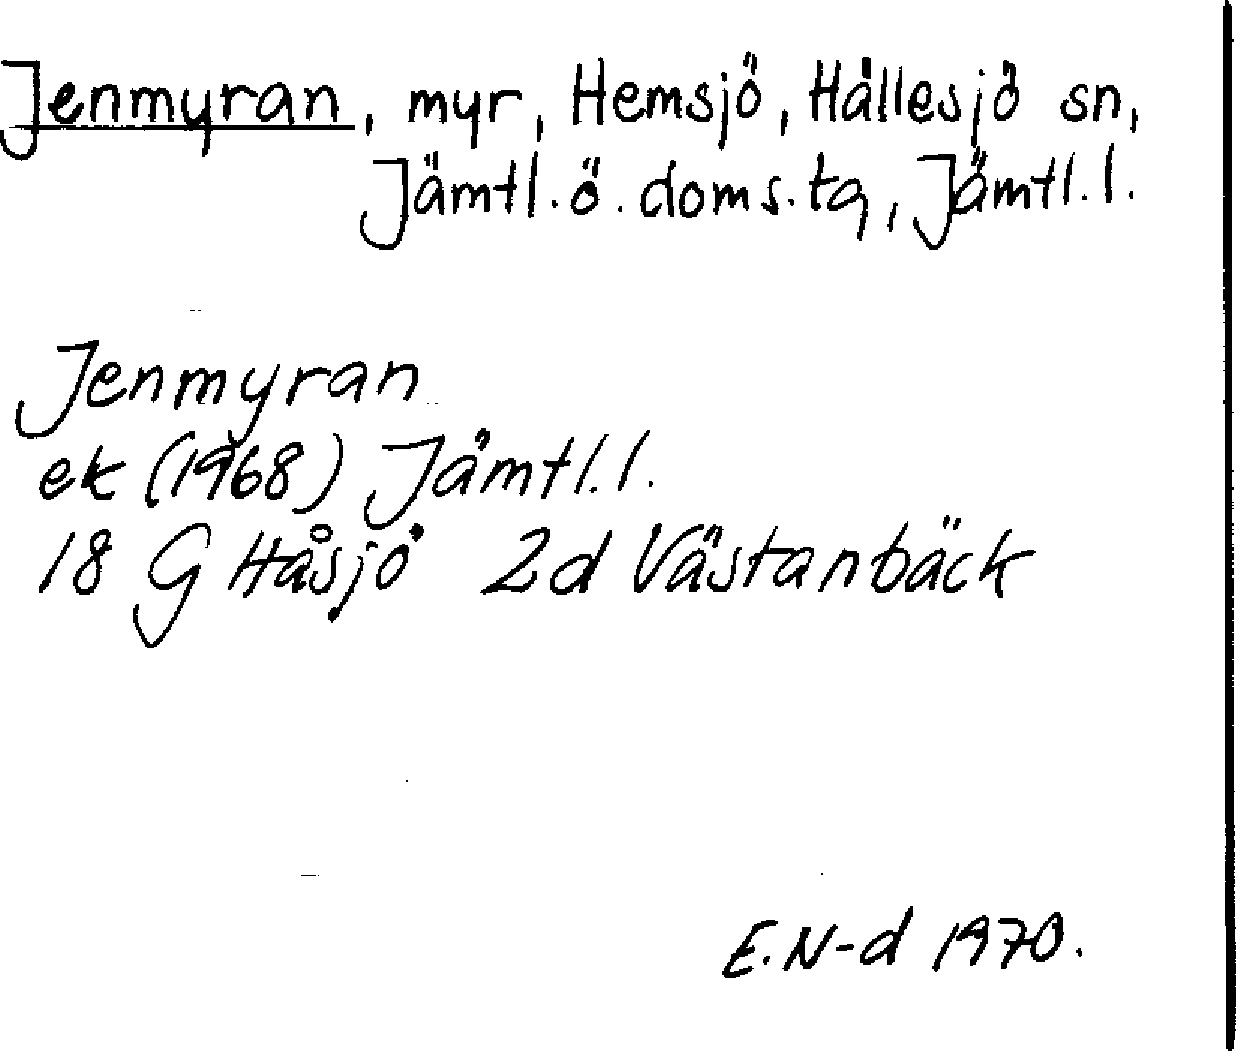 Jenmyran, myr, Hemsjö, Hällesjö sn,
Jämtl.ö.doms.tg, Jämtl.l.
Jenmyran
ek (1968) Jämtl.l.
18 G Håsjö 2d Västanbäck
E.N-d 1970.